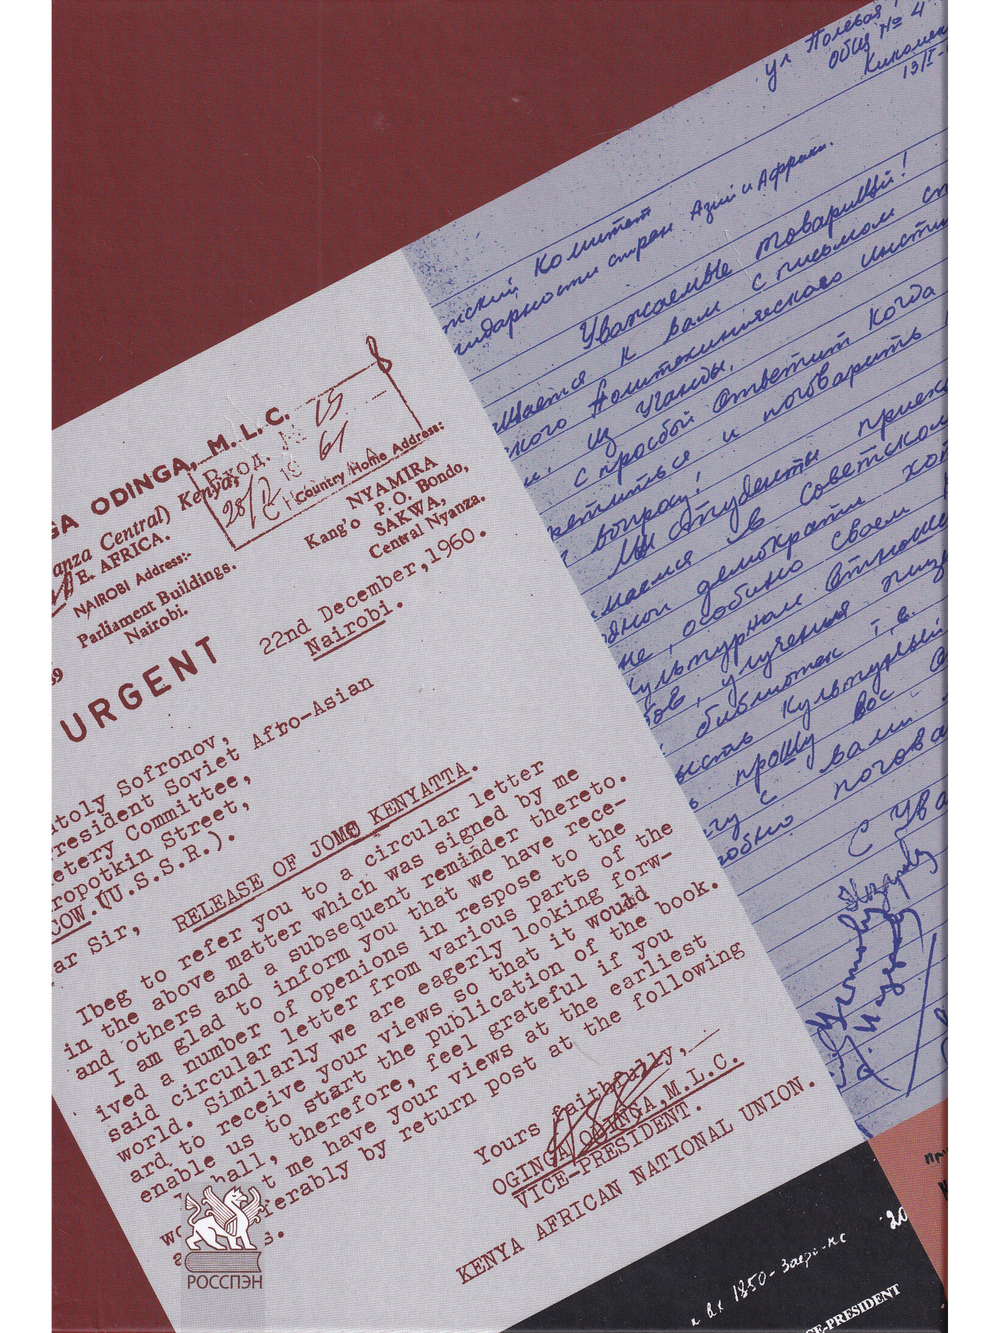 GA ODINGA, M.L.C.
anza Central) Kenya,
E. AFRICA.
NAIROBI Address:-
Parliament Buildings.
Nairobi.
Вход. №
15
28/
19 61
Country/Home Address:
NYAMIRA
Kang'o P. O. Bondo,
SAKWA,
Central Nyanza.
22nd December, 1960.
Nairobi.
URGENT
toly Sofronov,
resident Soviet Afro-Asian
etery Committee,
ropotkin Street,
COW.(U.S.S.R.).
ar Sir,
RELEASE OF JOMO KENYATTA.
Ibeg to refer you to a circular letter
in the above matter which was signed by me
and others and a subsequent reminder thereto.
I am glad to inform you that we have rece-
ived a number of openions in respose to the
said circular letter from various parts of the
world. Similarly we are eagerly looking forw-
ard to receive your views so that it would
enable us to start the publication of the book.
I shall, therefore, feel grateful if you
let me have your views at the earliest
ferably by return post at the following
s.
Yours faithfully,
OGINGA ODINGA, M.L.C.
VICE-PRESIDENT.
KENYA AFRICAN NATIONAL UNION.
РОССПЭН
ул Полевая
общ № 4
13/I-
тский комитет
лидарности стран Азии и Африки.
Уважаемые товарищи!
щается к вам с письмом ст
ского Политехнического инсти
из Уганды.
с просбой ответит когда
ретиться и поговарить
вопросу!
Студенты приеха
маемся в Советском
дной демократи хот
не, особино своем
культурном отноше
ов, улучения жизн
библиотек т.е.
ысть культурный
прошу вас
гу с вами
добно погова
С Ува
вх 1250-
20
CE-PRESIDENT